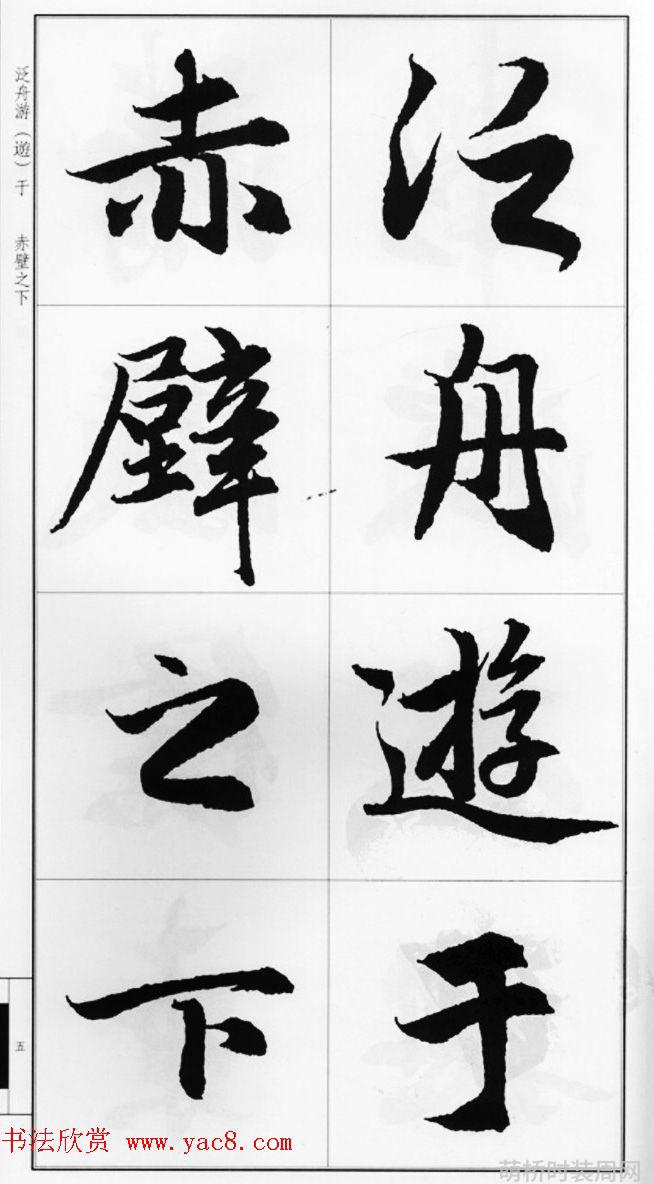 泛舟遊于
赤壁之下
泛舟游（遊）于 赤壁之下
五
书法欣赏 www.yac8.com
萌桥时装周网